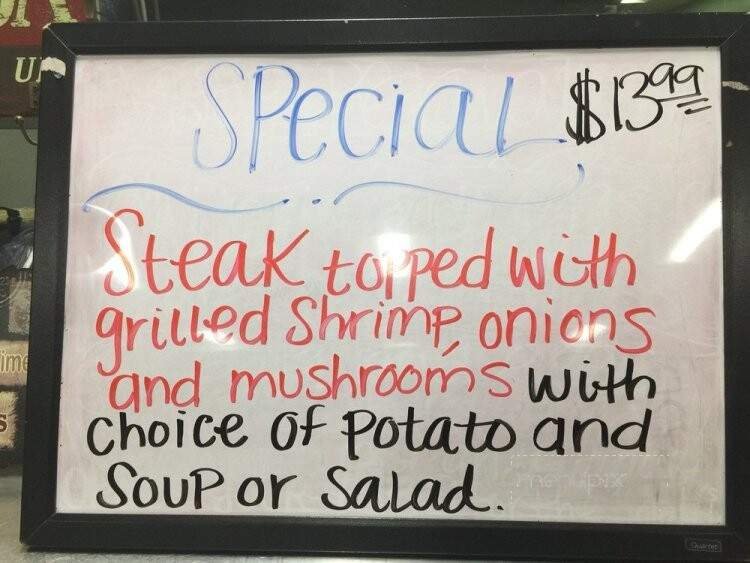 SPecial $13.99
Steak topped with
grilled Shrimp, onions
and mushrooms with
choice of Potato and
Soup or Salad.
menupix
Quartet